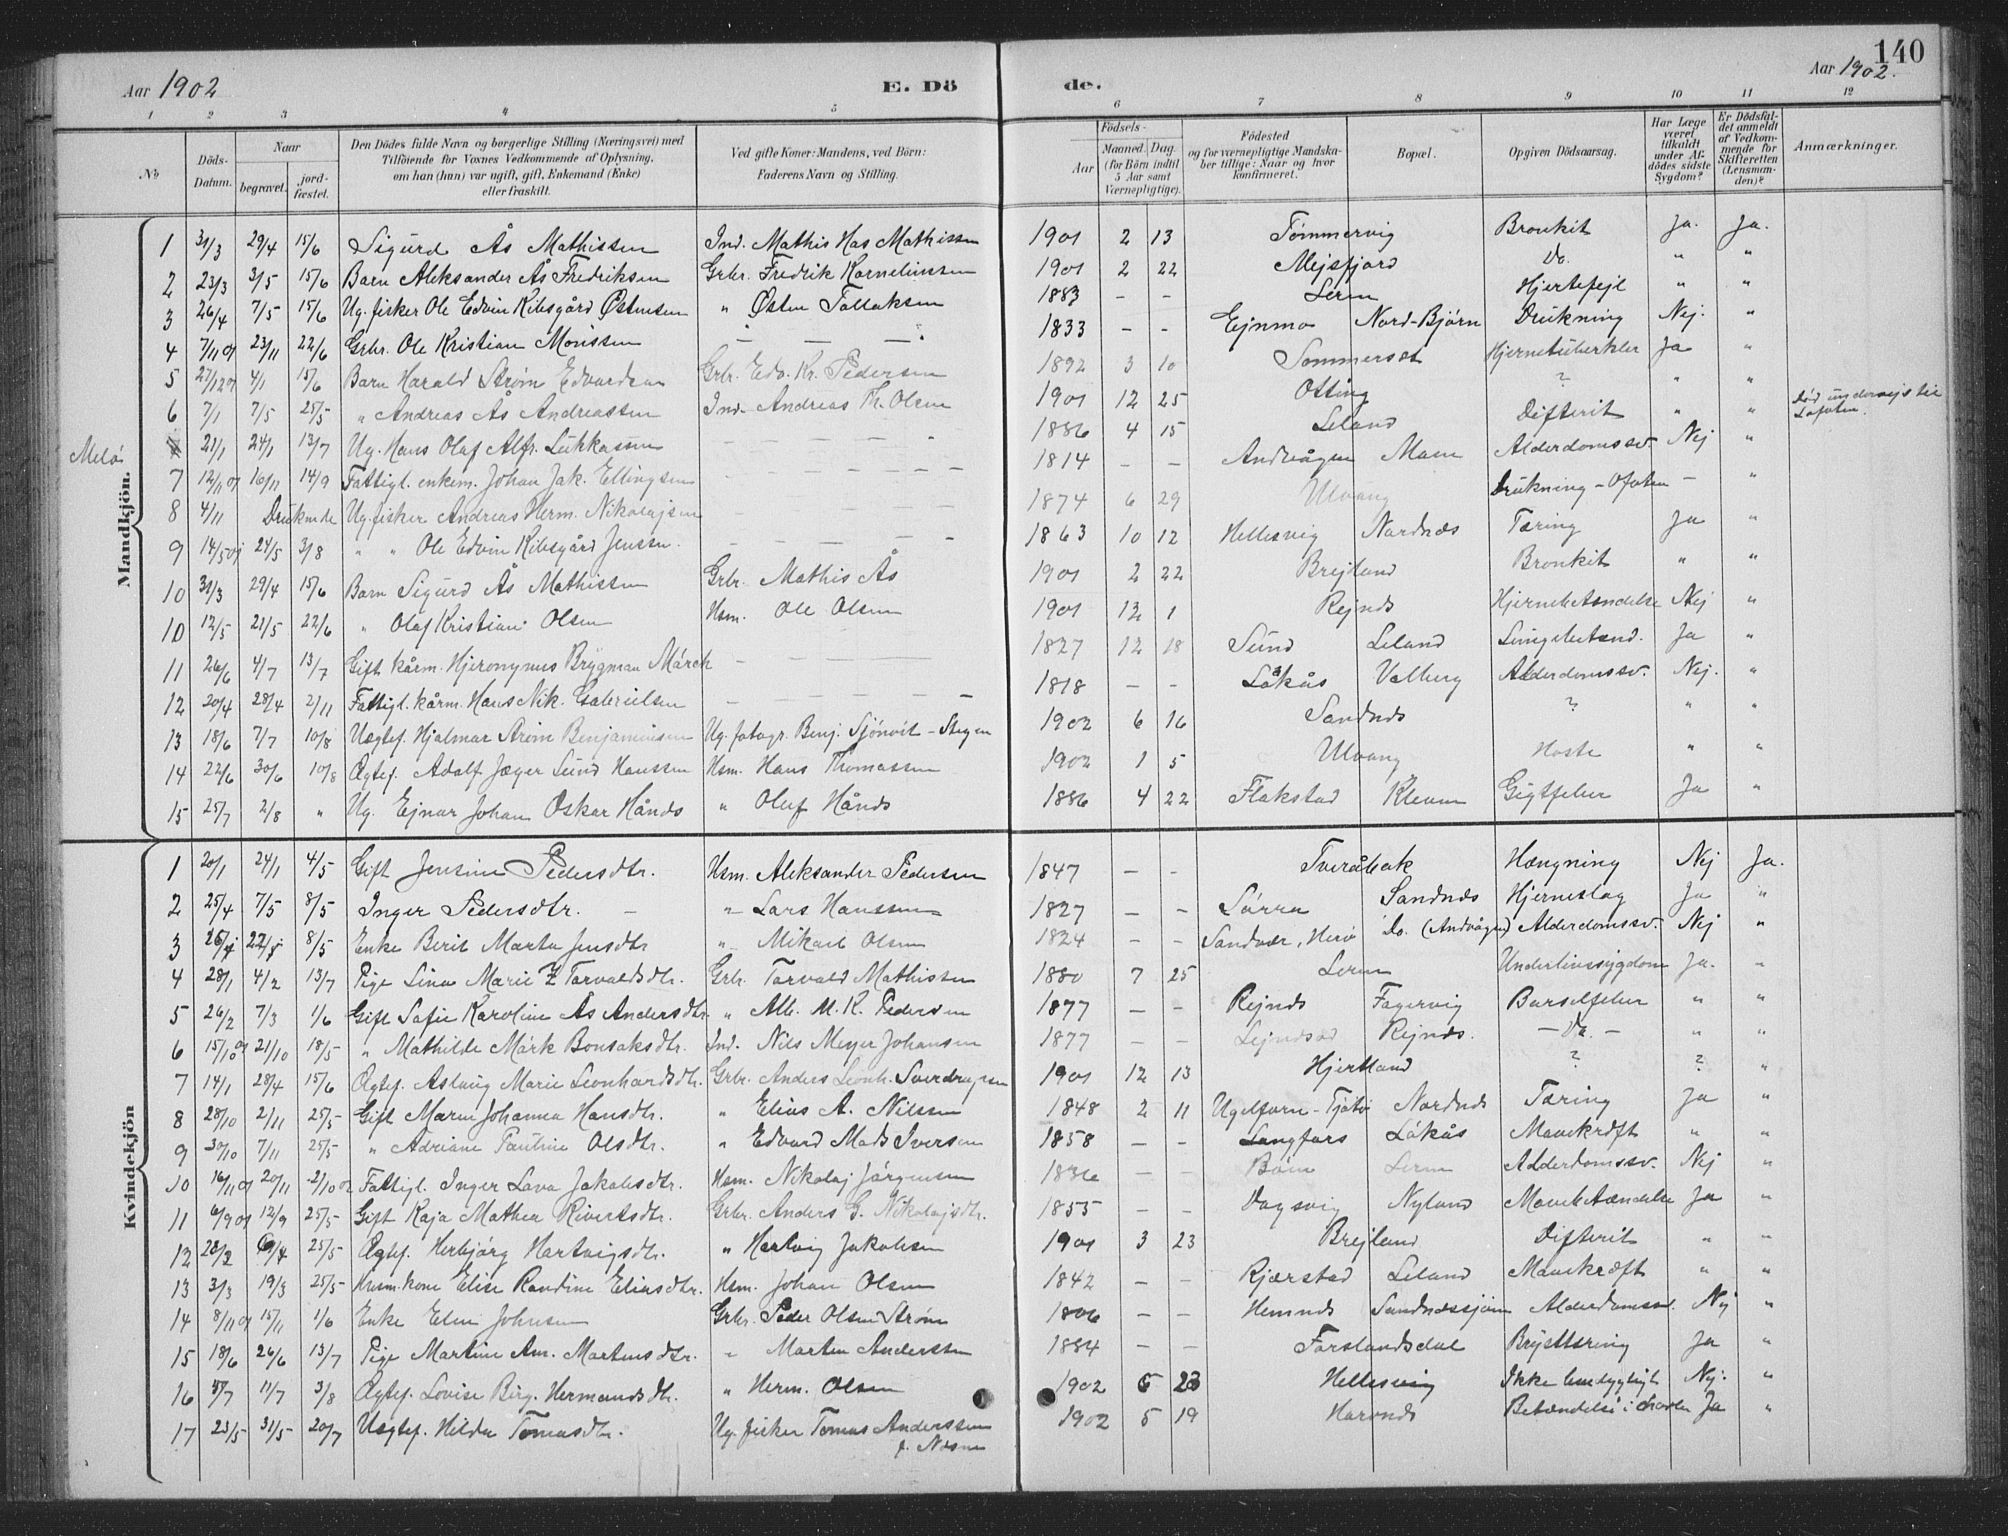 140
Aar 1902
E. Dö
de.
Aar 1902.
1 2 3 4 5 6 7 8 9 10 11 12
No
Döds-Datum.
Naar
begravet.
jord-fæstet.
Den Dödes fulde Navn og borgerlige Stilling (Næringsvei) med
Tilföiende for Voxnes Vedkommende af Oplysning,
om han (hun) var ugift, gift, Enkemand (Enke)
eller fraskilt.
Ved gifte Koner: Mandens, ved Börn:
Faderens Navn og Stilling.
Födsels-
Aar
Maaned. Dag.
(for Börn indtil
5 Aar samt
Værnepligtige).
Födested
og for værnepligtige Mandska-
ber tillige: Naar og hvor
konfirmeret.
Bopæl.
Opgiven Dödsaarsag.
Har Læge
været
tilkaldt
under Af-
dödes sidste
Sygdom?
Er Dödsfal-
det anmeldt
af Vedkom-
mende for
Skifteretten
(Lensman-
den)?
Anmærkninger.
Mandkjön.
1 31/3 29/4 15/6 Sigurd Ås Mathissen Ind. Mathis Has Mathissen 1901 2 13 Tömmervig Bronkit Ja. Ja.
2 23/3 3/5 15/6 Barn Aleksander Ås Fredriksen Grbr. Fredrik Korneliussen 1901 2 22 Mejsfjord Do. " "
3 26/4 7/5 15/6 Ug. fisker Ole Edvin Kibsgård Østensen " Østen Tollaksen 1883 - - Leren Hjertefejl " "
4 7/11 01 23/11 22/6 Grbr. Ole Kristian Monssen - - - 1833 - - Ejnmo Nord-Bjørn Drukning Nej. "
5 27/12 01 4/1 15/6 Barn Harald Strøm Edvardsen Grbr. Edv. Kr. Pedersen 1892 3 10 Sommerset Hjernetuberkler Ja "
6 7/1 7/5 25/5 " Andreas Ås Andreassen Ind. Andreas Th. Olsen 1901 12 25 Otting ? " "
Melö 21/1 24/1 13/7 Ug. Hans Olaf Alfr. Lukkassen - - - 1886 4 15 Leland Difterit " " Död undervejs til
Lofoten.
7 12/11 01 16/11 14/9 Fattigl. enkem. Johan Jak. Ellingsen - - - 1814 - - Andvågen Moen Alderdomssv. Nej "
8 4/11 Druknede Ug. fisker Andreas Herm. Nikolajsen - - - 1874 6 29 Ulvang Drukning - Ofoten - "
9 14/5 01 24/5 3/8 " " Ole Edvin Kibsgård Jenssen. - - - 1863 10 12 Hellesvig Nordnæs Tæring Ja "
10 31/3 29/4 15/6 Barn Sigurd Ås Mathissen Grbr. Mathis Ås 1901 2 22 Brejland Bronkit " "
10 12/5 21/5 22/6 " Olaf Kristian Olsen Hsm. Ole Olsen 1901 12 1 Rejnes Hjernebetændelse Nej "
11 26/6 4/7 13/7 Gift kårm. Hjeronymus Brygman Mörch - - - 1827 12 18 Sund Leland Lungebetænd. Ja "
12 20/4 28/4 2/11 Fattigl. kårm. Hans Nik. Gabrielsen - - - 1818 - - Låkås Valberg Alderdomssv. Nej. "
13 18/6 7/7 10/8 Uægtef. Hjalmar Strøm Benjaminsen Ug. fotogr. Benj. Sjönvit - Stegen 1902 6 16 Sandnes ? " "
14 22/6 30/6 10/8 Ægtef. Adolf Jæger Lund Hanssen Hsm. Hans Thomassen 1902 1 5 Ulvang Hoste " "
15 25/7 2/8 " Ug. Ejnar Johan Oskar Hånds " Oluf Hånds 1886 4 22 Flakstad Kleven Gigtfeber Ja "
Kvindekjön
1 20/1 24/1 4/5 Gift Jensine Pedersdtr. Hsm. Aleksander Pedersen 1847 - - Tveråbak Hængning Nej Ja.
2 25/4 7/5 8/5 Inger Pedersdtr. - " Lars Hanssen 1827 - - Sörra Sandnes Hjerneslag Ja "
3 8/5 Enke Berit Marta Jensdtr " Mikael Olsen 1824 - - Sandvær, Herö Do. (Andvågen) Alderdomssv. Nej "
4 28/1 4/2 13/7 Pige Lina Marie Z Torvaldsdtr. Grbr. Torvald Mathissen 1880 7 25 Leren Underlivssygdom Ja. "
5 26/2 7/3 1/6 Gift Sofie Karoline Ås Andersdtr. " Alb. M. K. Pedersen 1877 - - Rejnes Fagervig Barselfeber " "
6 15/10 01 21/10 18/5 " Mathilde Mörk Bonsaksdtr. Ind. Nils Meyer Johansen 1877 - - Rejnes. - Do. - " "
7 14/1 28/4 15/6 Ægtef. Aslaug Marie Leonhardsdtr. Grbr. Anders Leonh. Sverdrupsen 1901 12 13 Hjertland ? ? "
8 28/10 2/11 25/5 Gift Maren Johanna Hansdtr. " Elias A. Nilssen 1848 2 11 Ugelforn - Tjötö Nordnes Tæring Ja "
9 30/10 7/11 25/5 " Adriane Pauline Olsdtr. " Edvard Mads Iversen 1858 - - Langfors Låkås Mavekræft " "
10 16/11 01 20/11 2/10 02 Fattigl. Inger Lava Jakobsdtr. Hsm. Nikolaj Jörgensen 1836 - - Böen Leren Alderdomssv. Nej "
11 6/9 01 12/9 25/5 Gift Kaja Mathea Rivertsdtr. Grbr. Anders G. Nikolajsdtr. 1855 - - Dagsvig Nyland Mavebetændelse Ja "
12 28/2 25/5 Ægtef. Herbjörg Hartvigsdtr. " Hartvig Jakobsen 1901 3 23 Brejland Difterit " "
13 3/3 19/3 25/5 Husm. kone Elise Randine Eliasdtr. Hsm. Johan Olsen 1842 - - Kjærstad Leland Mavekræft " "
14 8/11 01 15/11 1/6 Enke Elen Johnsen Grbr. Peder Olsen Strøm 1806 - - Hemnes Sandnessjöen Alderdomssv. Nej "
15 18/6 26/6 13/7 Pige Martine Am. Martensdtr. " Morten Anderssen 1884 - - Forslandsdal Brysttæring Ja "
16 5/7 11/7 3/8 Ægtef. Lovise Birg. Hermandsdtr. " Herm. Olsen 1902 6 23 Hellesvig Ikke Nej. "
17 23/5 31/5 20/7 Uægtef. Hilda Tomasdtr. Ug. fisker Tomas Anderssen
f. Næsne 1902 5 19 Harønes Betændelse i Ja "